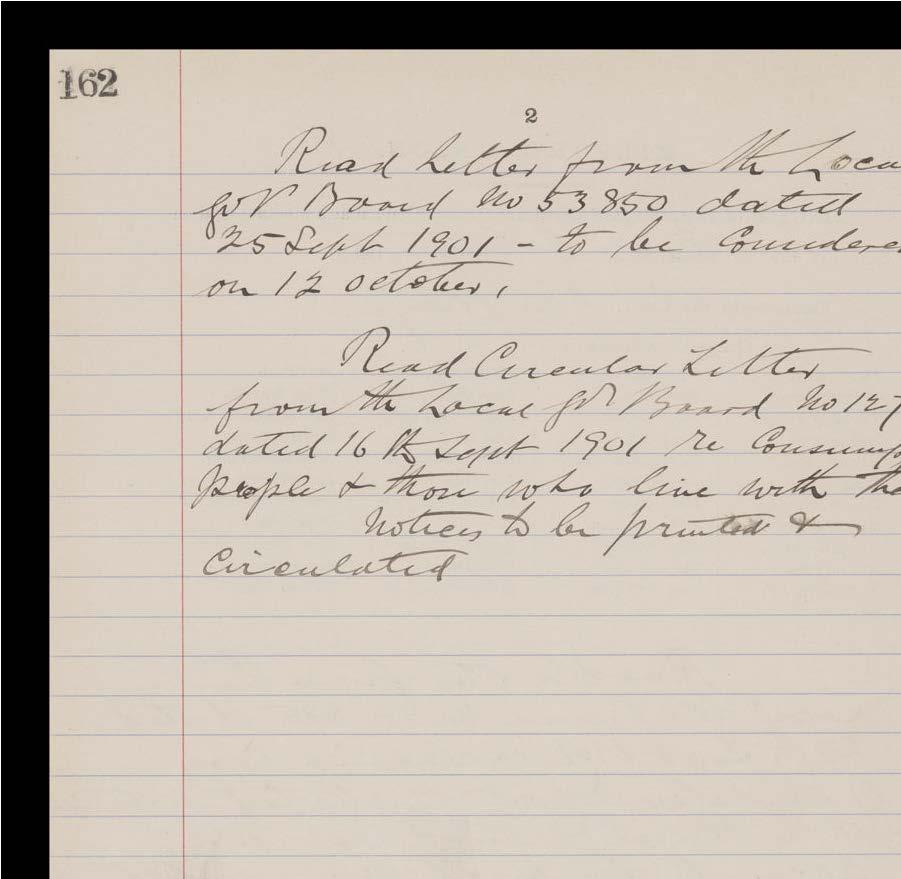 162
2
Read Letter from the Loca
Govt Board No 53850 dated
25 Sept 1901 - to be Considere
on 12 October,
Read Circular Letter
from the Local Govt Board No 127
dated 16th Sept 1901 re Consump
people & those who live with the
Notices to be printed &
Circulated